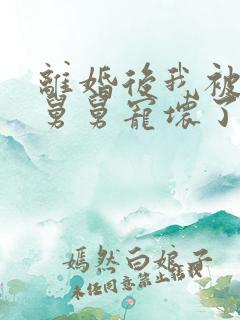 離婚後我被
舅舅寵壞了
嫣然白娘子
未任同意禁止轉載